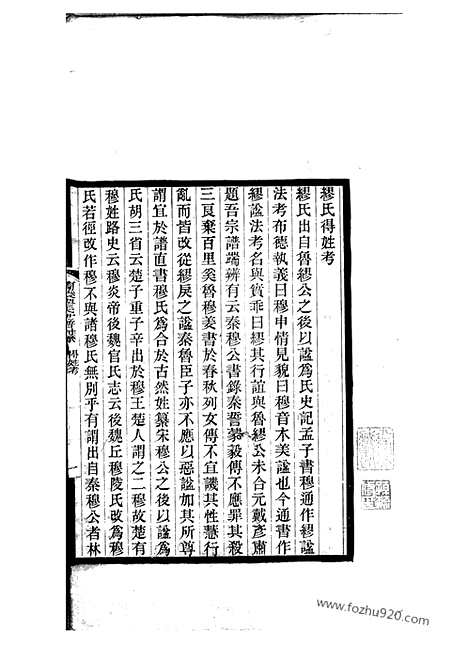 繆氏得姓考
繆氏出自魯繆公之後以諡為氏史記孟子書穆通作繆諡
法考布德執義曰穆中情見貌曰穆音木美諡也今通書作
繆諡法考名與實乖曰繆其行誼與魯繆公未合元戴彥肅
題吾宗譜端辨有云秦穆公書錄秦誓蒙毅傳不應罪其殺
三良棄百里奚魯穆姜書於春秋列女傳不宜譏其性慧行
亂而皆改從繆戾之諡秦魯臣子亦不應以惡諡加其所尊
謂宜於譜直書穆氏為合於古然姓纂宋穆公之後以諡為
氏胡三省云楚子重子辛出於穆王楚人謂之二穆故楚有
穆姓路史云穆炎帝後魏官氏志云後魏丘穆陵氏改為穆
氏若徑改作穆不與諸穆氏無別乎有謂出自秦穆公者林
得姓考
一
www.fozhu920.com